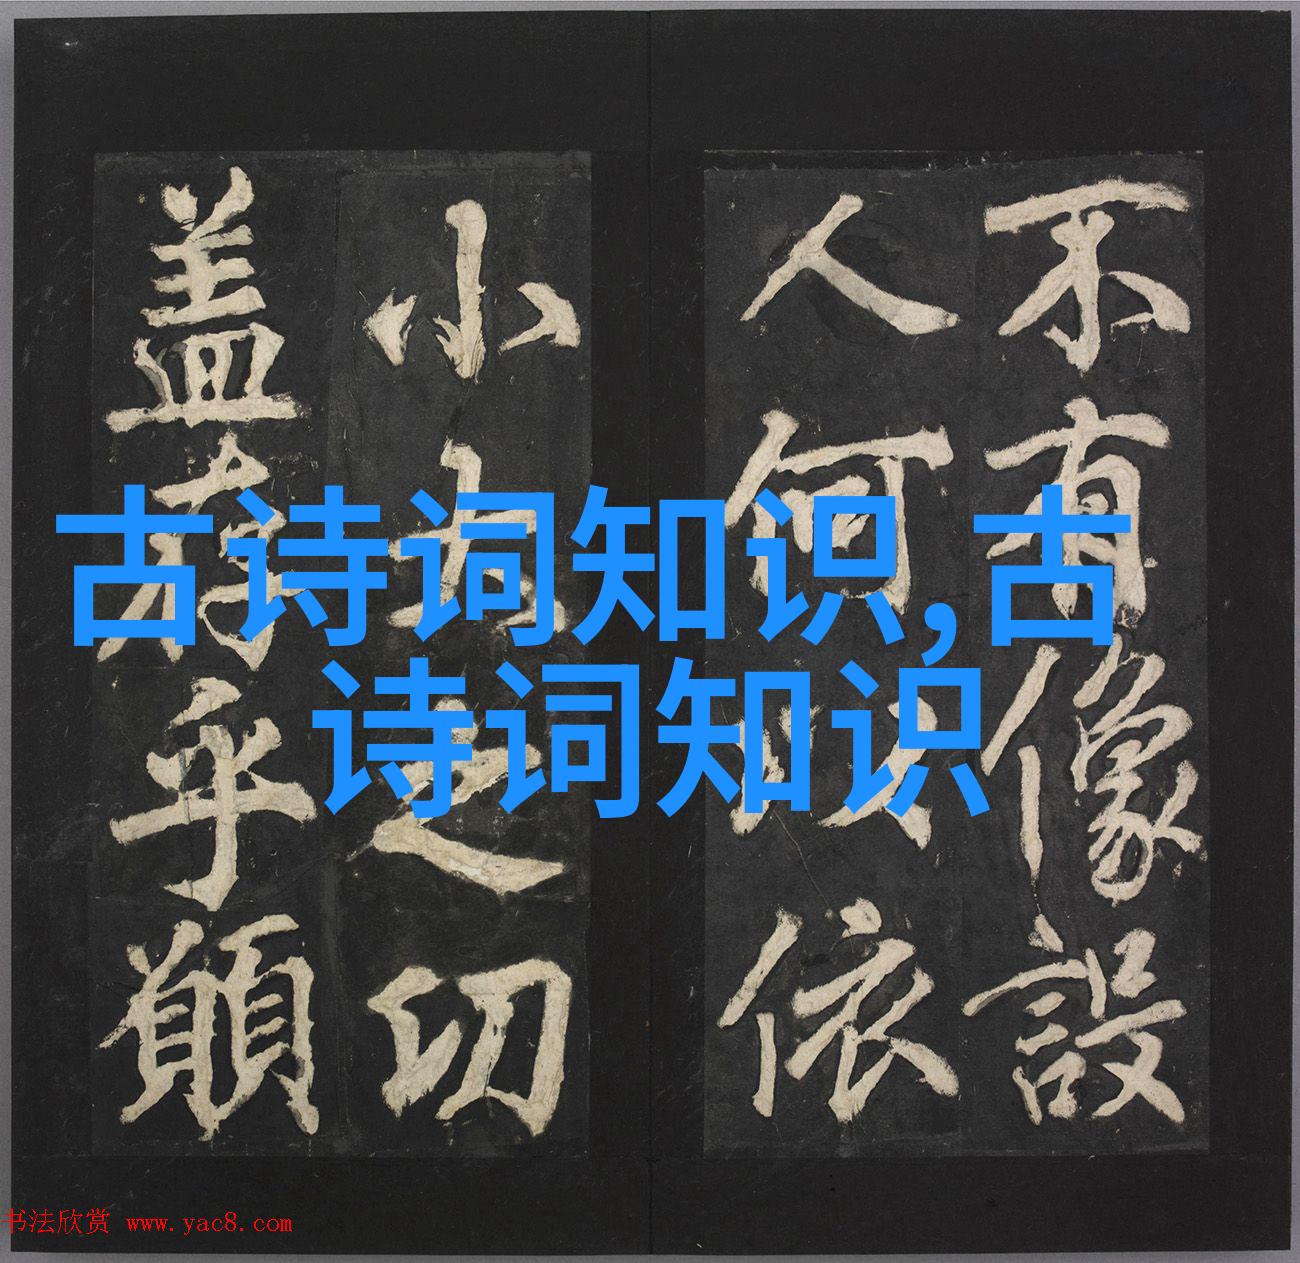 不有像設
人何以依
小之切
盖存乎願
古诗词知识,古
诗词知识
书法欣赏 www.yac8.com